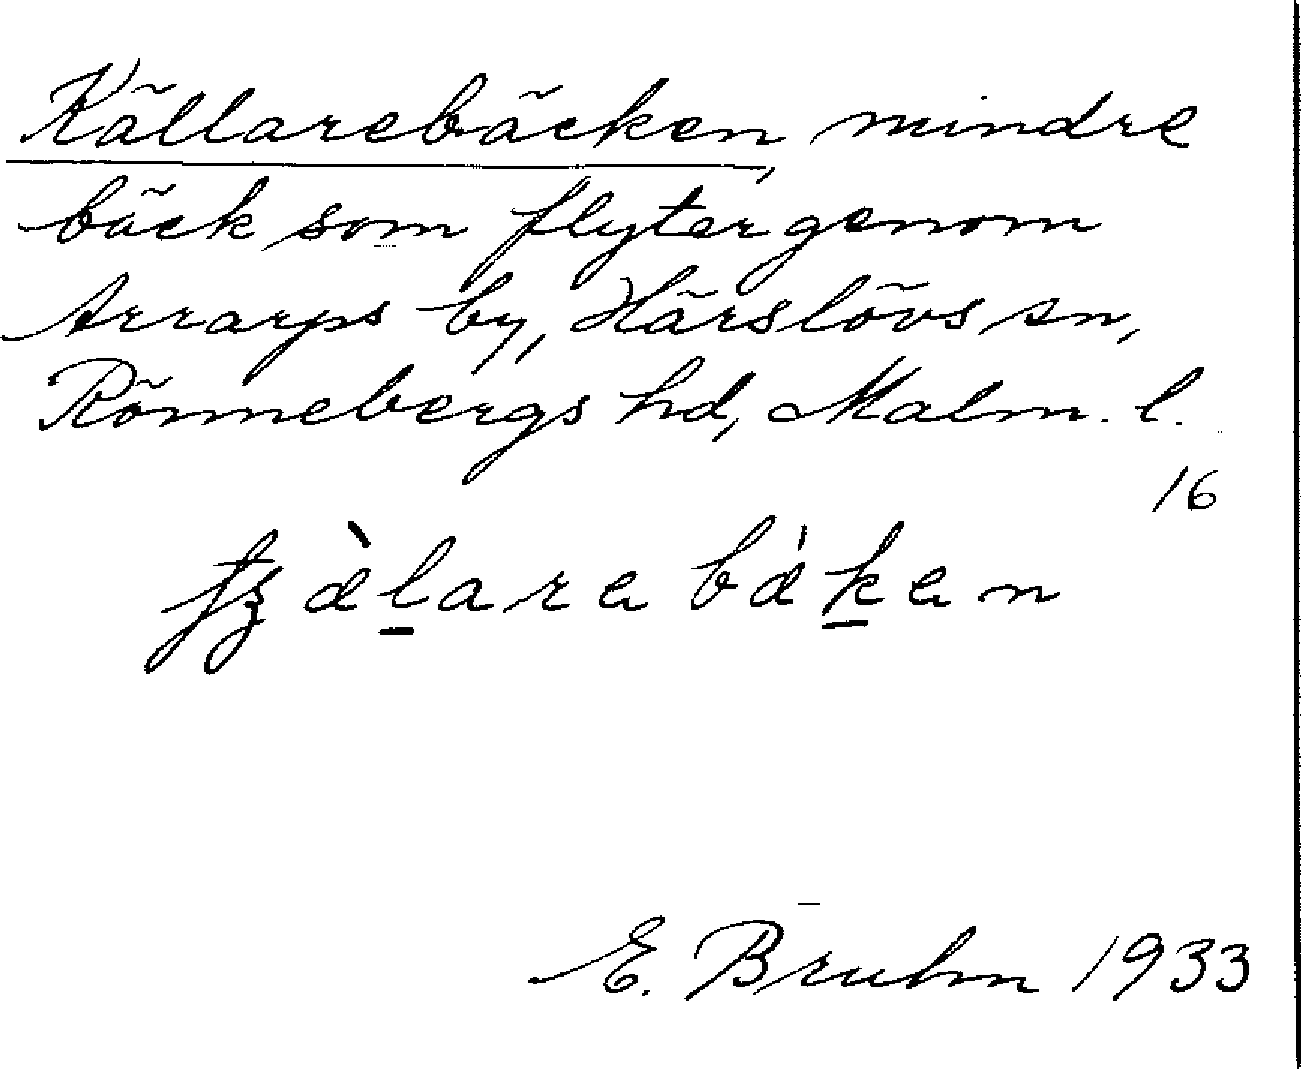 Källarebäcken, mindre
bäck som flyter genom
Arrarps by, Härslövs sn,
Rönnebergs hd, Malm. l.
16
E. Bruhn 1933